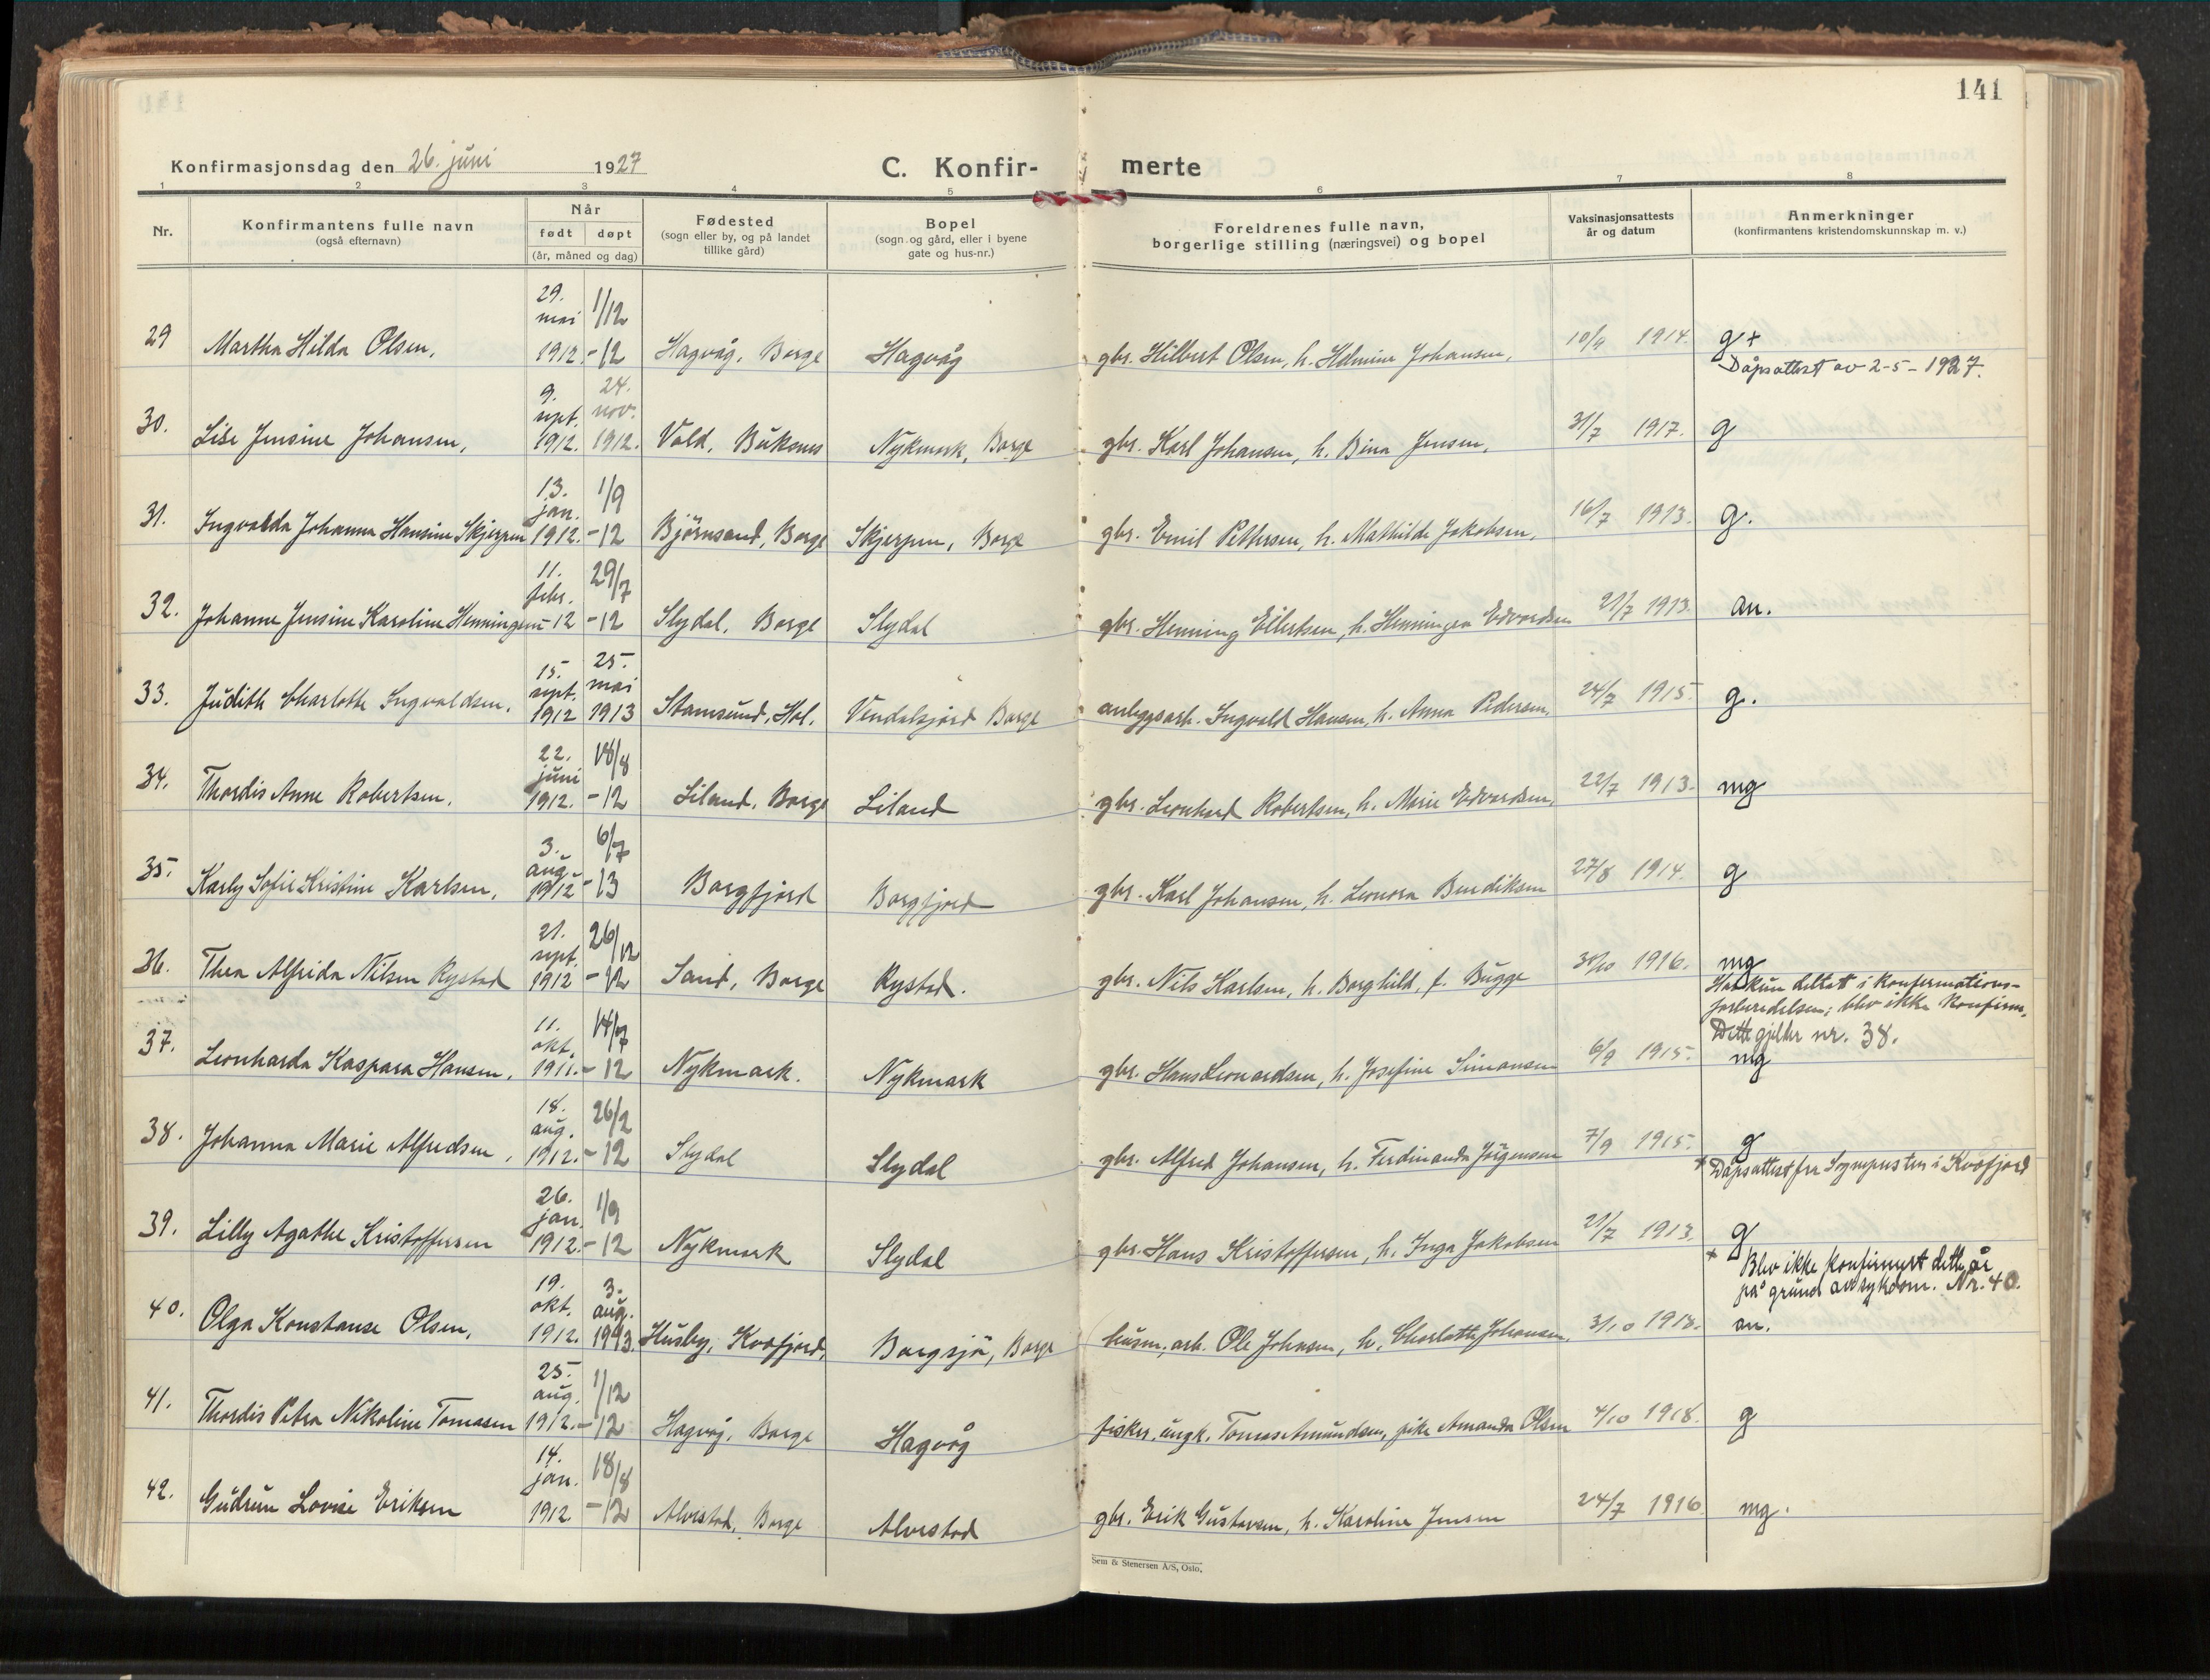 141
Konfirmasjonsdag den 26. juni 1927
C. Konfir- merte
1 2 3 4 5 6 7 8
Nr.
Konfirmantens fulle navn
(også efternavn)
Når
født døpt
(år, måned og dag)
Fødested
(sogn eller by, og på landet
tillike gård)
Bopel
(sogn og gård, eller i byene
gate og hus-nr.)
Foreldrenes fulle navn,
borgerlige stilling (næringsvei) og bopel
Vaksinasjonsattests
år og datum
Anmerkninger
(konfirmantens kristendomskunnskap m. v.)
29 Martha Hilda Olsen, 29. mai 1912. 1/12 -12 Hagvåg, Borge Hagvåg gbr. Hilbert Olsen, h. Helmine Johansen, 10/9 1914. g+
Dåpsattest av 2-5-1927.
30. Lise Jensine Johansen, 9. sept. 1912. 24. nov. 1912. Vold, Buksnes Nykmark, Borge gbr. Karl Johansen, h. Bina Jensen, 31/7 1917. g
31. Ingvalda Johanna Hansine Skjerpen 13. jan. 1912. 1/9 -12 Bjørnsand, Borge Skjerpen, Borge gbr. Emil Pettersen, h. Mathilde Jakobsen, 16/7 1913. g.
32. Johanne Jensine Karoline Henningsen 11. febr. -12 29/7 -12 Slydal, Borge Slydal gbr. Henning Eilertsen, h. Henningea Edvardsen 21/7 1913. an.
33. Judith Charlotte Ingvaldsen. 15. sept. 1912 25. mai 1913 Stamsund, Hol. Vendalsjord Borge anleggsarb. Ingvald Hansen, h. Anna Pedersen, 24/7 1915. g.
34. Thordis Anne Robertsen. 22. juni 1912. 18/8 -12 Liland, Borge Liland gbr. Leonhard Robertsen, h. Marie Edvardsen, 22/7 1913. mg
35. Karly Sofie Kristine Karlsen, 3. aug. 1912 6/7 -13 Borgfjord Borgfjord gbr. Karl Johansen, h. Leonora Bendiksen 27/8 1914. g
36. Thea Alfrida Nilsen Rystad 21. sept. 1912 26/12 -12 Sand, Borge Rystad. gbr. Nils Karlsen, h. Borghild, f. Bugge 30/10 1916. mg
Har kun deltatt i konfirmations-
forberedelsen; blev ikke konfirm.
Dette gjelder nr. 38.
37. Leonharda Kaspara Hansen, 11. okt. 1911. 14/7 -12 Nykmark. Nykmark gbr. Hans Leonardsen, h. Josefine Simonsen 6/9 1915. mg
38. Johanna Marie Alfredsen, 18. aug. 1912. 26/2 -12 Slydal Slydal gbr. Alfred Johansen, h. Ferdinanda Jörgensen 7/9 1915. g
+ Dåpsattest fra Sognepresten i Kvæfjord
39. Lilly Agathe Kristoffersen 26. jan. 1912. 1/9 -12 Nykmark Slydal gbr. Hans Kristoffersen, h. Inga Jakobsen 21/7 1913. g
+ Blev ikke konfirmert dette år
på grunn av sykdom. Nr. 40.
40. Olga Konstanse Olsen, 19. okt. 1912. 3. aug. 1913. Husby, Kvæfjord, Borgsjö, Borge husm., arb. Ole Johnsen, h. Charlotte Johansen. 3/10 1918. an.
41. Thordis Petra Nikoline Tomasen 25. aug. 1912. 1/12 -12 Hagvåg, Borge Hagvåg fisker, ungk. Tomas Amundsen, pike Amanda Olsen 4/10 1918. g
42. Gudrun Lovise Eriksen 14. jan. 1912 18/8 -12 Alvestad, Borge Alvestad gbr. Erik Gustavsen, h. Karoline Jensen 24/7 1916 mg.
Sem & Stenersen A/S, Oslo.